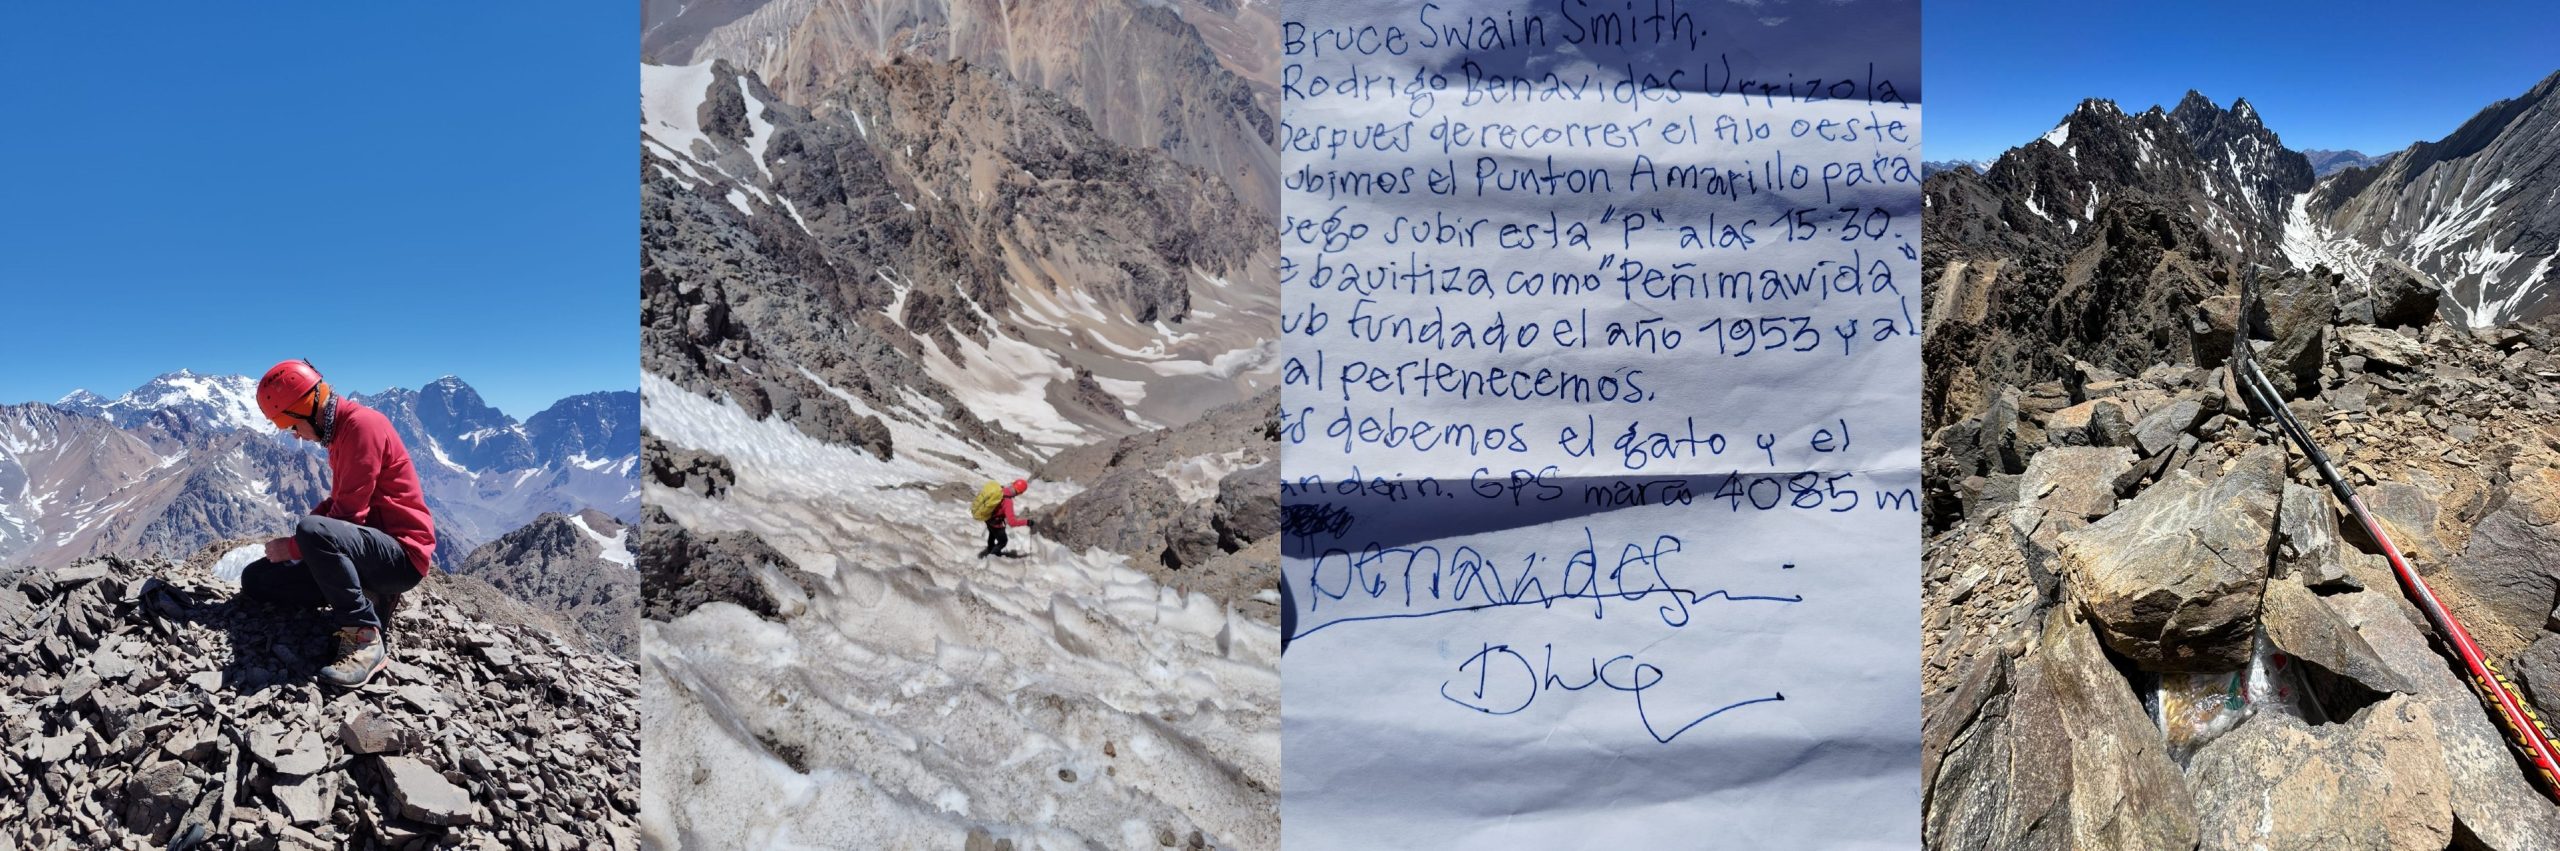 Bruce Swain Smith.
Rodrigo Benavides Urrizola
Despues de recorrer el filo oeste
ubimos el Punton Amarillo para
uego subir esta "P" a las 15:30.
e bautiza como "Peñimawida"
ub fundado el año 1953 y al
al pertenecemos.
es debemos el gato y el
andain. GPS marco 4085 m
benavides